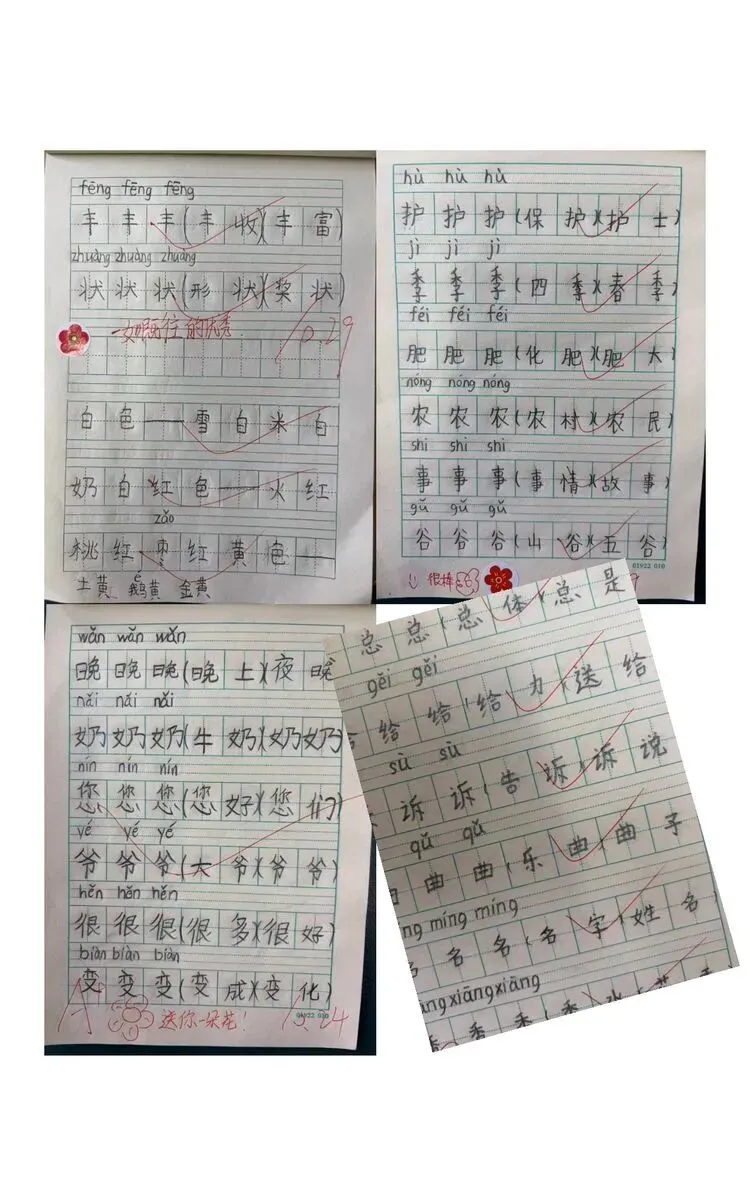 fēng fēng fēng
丰丰丰(丰收)(丰富)
zhuàng zhuàng zhuàng
状状状(形状)(奖状)
一如既往的优秀
10.29
白色——雪白米白
奶白红色——火红
zǎo
桃红枣红黄色—
é
土黄 鹅黄 金黄
hù hù hù
护护护(保护)(护士)
jì jì jì
季季季(四季)(春季)
féi féi féi
肥肥肥(化肥)(肥大)
nóng nóng nóng
农农农(农村)(农民)
shì shì shì
事事事(事情)(故事)
gǔ gǔ gǔ
谷谷谷(山谷)(五谷)
01922 010
很棒
wǎn wǎn wǎn
晚晚晚(晚上)(夜晚
nǎi nǎi nǎi
奶奶奶(牛奶)(奶奶)
nín nín nín
您您您(您好)(您们)
yé yé yé
爷爷爷(大爷)(爷爷)
hěn hěn hěn
很很很(很多)(很好)
biàn biàn biàn
变变变(变成)(变化)
01922 010
A 送你一朵花!
总总总(总体)(总是
gěi gěi
给给给(给力)(送给
sù sù
诉诉(告诉)(诉说
qǔ qǔ
曲曲曲(乐曲)(曲子
ng míng míng
名名名(名字)(姓名)
ang xiāng xiāng
香香香(香水)(